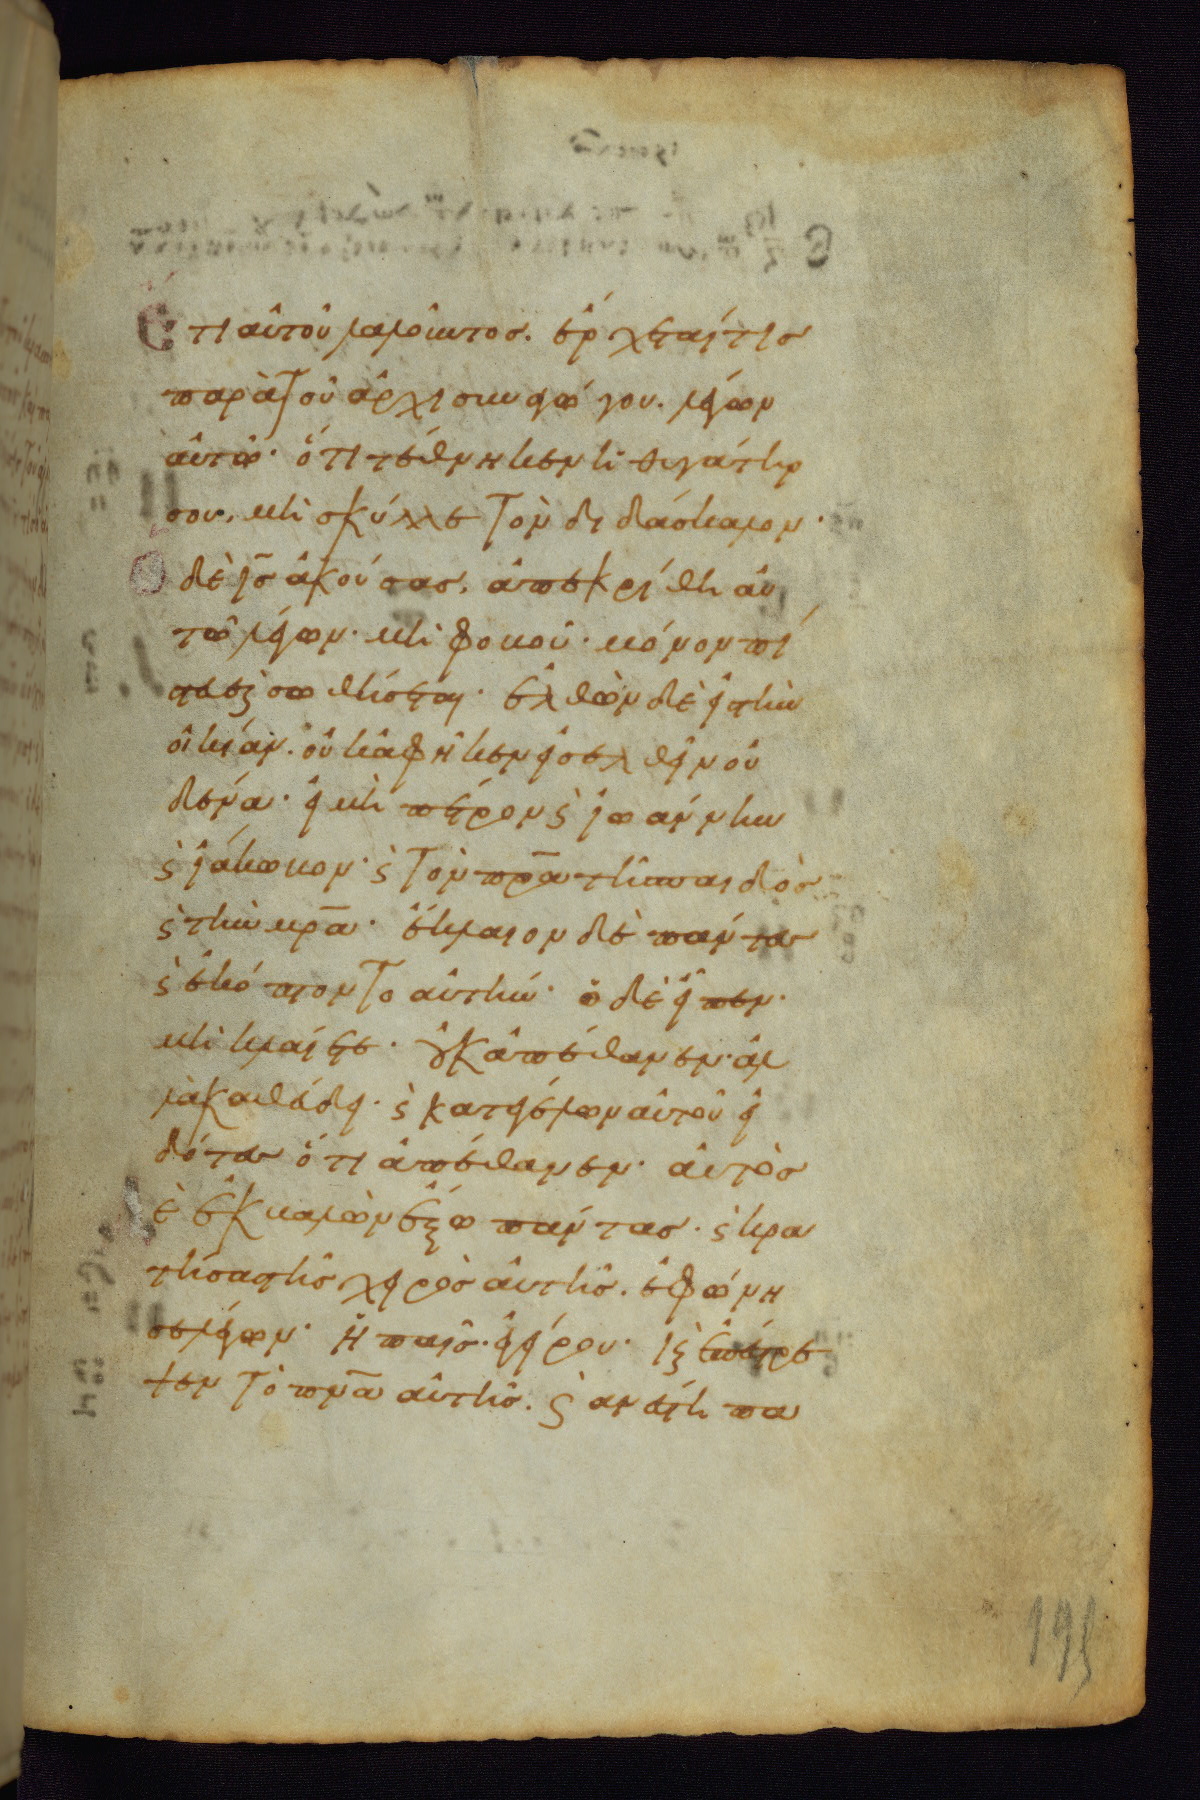 Ἔτι αὐτοῦ λαλοῦντος. ἔρχεταί τις
παρὰ τοῦ ἀρχισυναγώγου. λέγων
αὐτῶ· ὅτι τέθνηκεν ἡ θυγάτηρ
σου. μὴ σκύλλε τὸν διδάσκαλον·
ὁ δὲ ἰς̅ ἀκούσας, ἀπεκρίθη αὐ
τῶ λέγων· μὴ φοβοῦ· μόνον πί
στευε ϗ σωθήσεται· ἐλθὼν δὲ εἰς τὴν
οἰκίαν. οὐκ ἀφῆκεν εἰσελθεῖν οὐ
δένα· εἰ μὴ πέτρον ϗ ἰωάννην
ϗ ἰάκωβον· ϗ τὸν πρ̅α τῆς παιδὸς
ϗ τὴν μρ̅α· ἔκλαιον δὲ πάντες
ϗ ἐκόπτοντο αὐτήν· ὁ δὲ εἶπεν·
μὴ κλαίετε· οὐκ ἀπέθανεν· ἀλ
λὰ καθεύδει· ϗ κατεγέλων αὐτοῦ εἰ
δότες ὅτι ἀπέθανεν· αὐτὸς
δὲ ἐκβαλὼν ἔξω πάντας· ϗ κρα
τήσας τῆς χειρὸς αὐτῆς. ἐφώνη
σε λέγων· ἡ παῖς· ἐγείρου· ϗ ἐπέστρε
ψεν τὸ πν̅α αὐτῆς. ϗ ἀνέστη πα
195